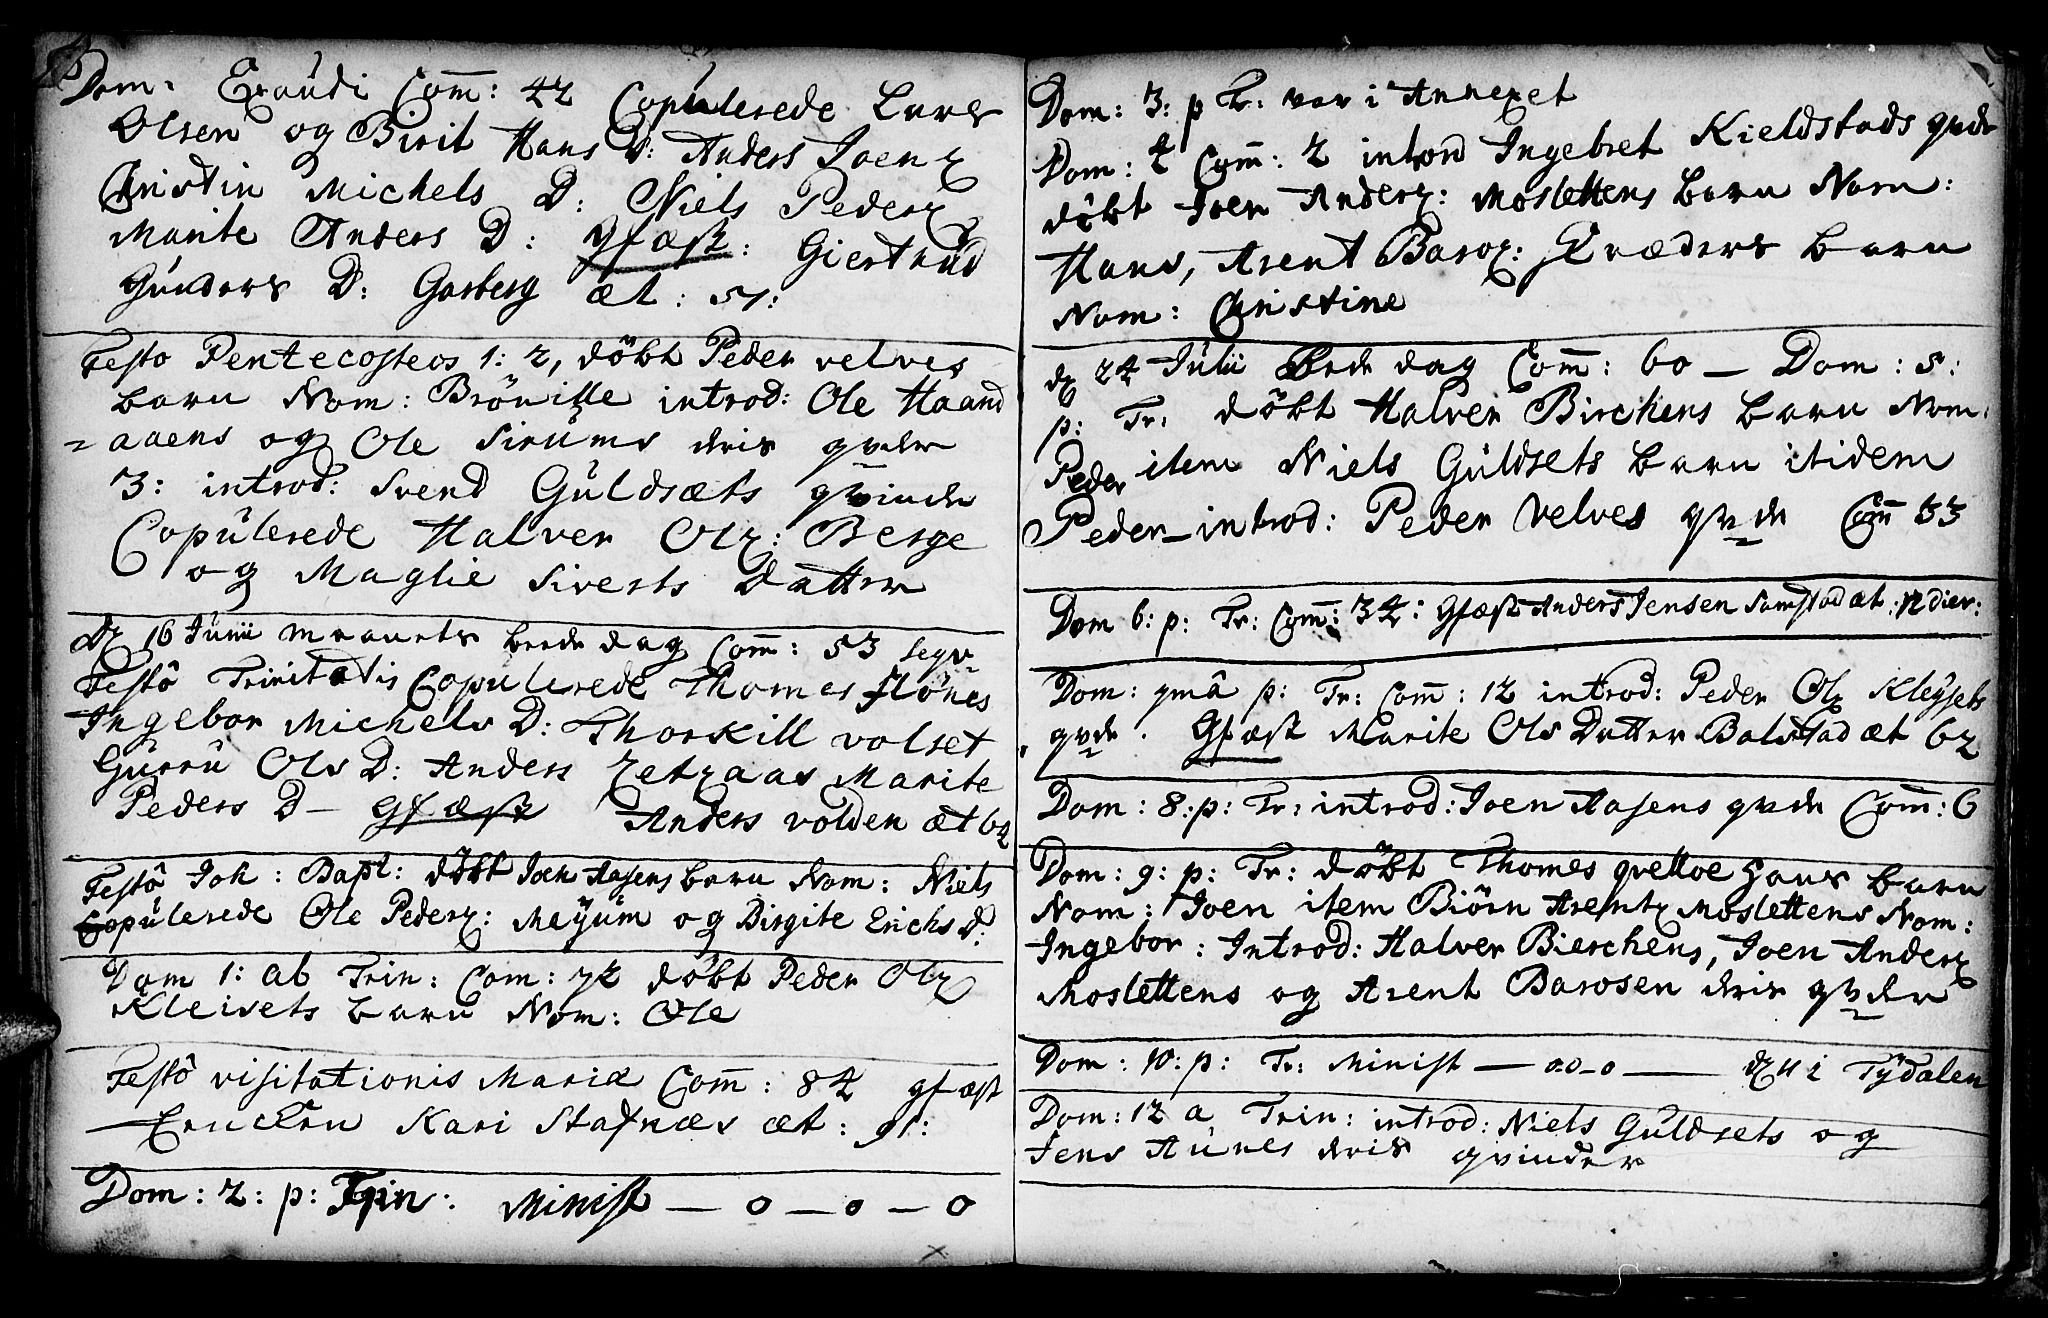 Dom: Exaudi Com̄: 42 Copulerede Lars
Olsen og Birit Hans D: Anders Joenz
Christin Michels D: Niels Pederz
Marite Anders D: Gfæst: Giertrud
Gunders D: Garberg æt: 57:
Festo Pentecosteos 1: 2, döbt Peder velves
barn Nom: Brönille introd: Ole Haand
=aaens og Ole Sirums deris qvder
3: introd: Svend Guldsæts qvinde
Copulerede Halver Olz: Berge
og Maglie Siverts Datter
Dz 16 Junii maanets beede dag Com̄: 53 seqv
Festô Trinitatis Copulerede Thomes Flönes
Ingebor Michels D: Thorkill volset
Gurru Ols D: Anders Zetzaas Marite
Peders D — Gfæst Anders volden æt 64
Festô Joh: Bapt: döbt Joen Aasens barn Nom: Niels
Copulerede Ole Pederz: Meÿum og Birgite Erichs D:
Dom 1: ab Trin: Com: 72 döbt Peder Olz
Kleisets barn Nom: Ole
Festô visitationis Mariæ Com̄: 84 gfæst
— Kari Stafnæs æt: 91:
Dom: 2: p: Trin: Minist — o — o — o
Dom: 3: p Tr: var i Annexet
Dom: 4 Com̄: 2 introd Ingebret Kieldstads qvde
döbt Joen Anderz: Moslettens barn Nom:
Hans, Arent Baroz: Græders barn
Nom: Christine
dz 24 Julii Beede dag Com̄: 60 — Dom: 5:
p: Tr: döbt Halver Birchens barn Nom:
Peder item Niels Guldsets barn itidem
Peder — introd: Peder Velves qvde Com̄ 33
Dom 6: p: Tr: Com̄: 34: Gfæst Anders Jensen Samstad æt: 12 dier:
Dom: 7mâ p: Tr: Com̄: 12 introd: Peder Olz Kleÿsets
qvde. Gfæst Marite Ols Datter Balstad æt 62
Dom: 8: p: Tr: introd: Joen Aasens qvde Com̄: 6
Dom: 9: p: Tr: döbt Thomes qvelloe Hans barn
Nom: Joen item Biörn Arentz Moslettens Nom:
Ingebor: Introd: Halver Bierchens, Joen Anderz
Moslettens og Arent Barosen deris qvder
Dom: 10: p: Tr: Minist — o o — o — dz 11 i Tÿdalen
Dom: 12 a Trin: introd: Niels Guldsets og
Jens Aunes deris qvinder